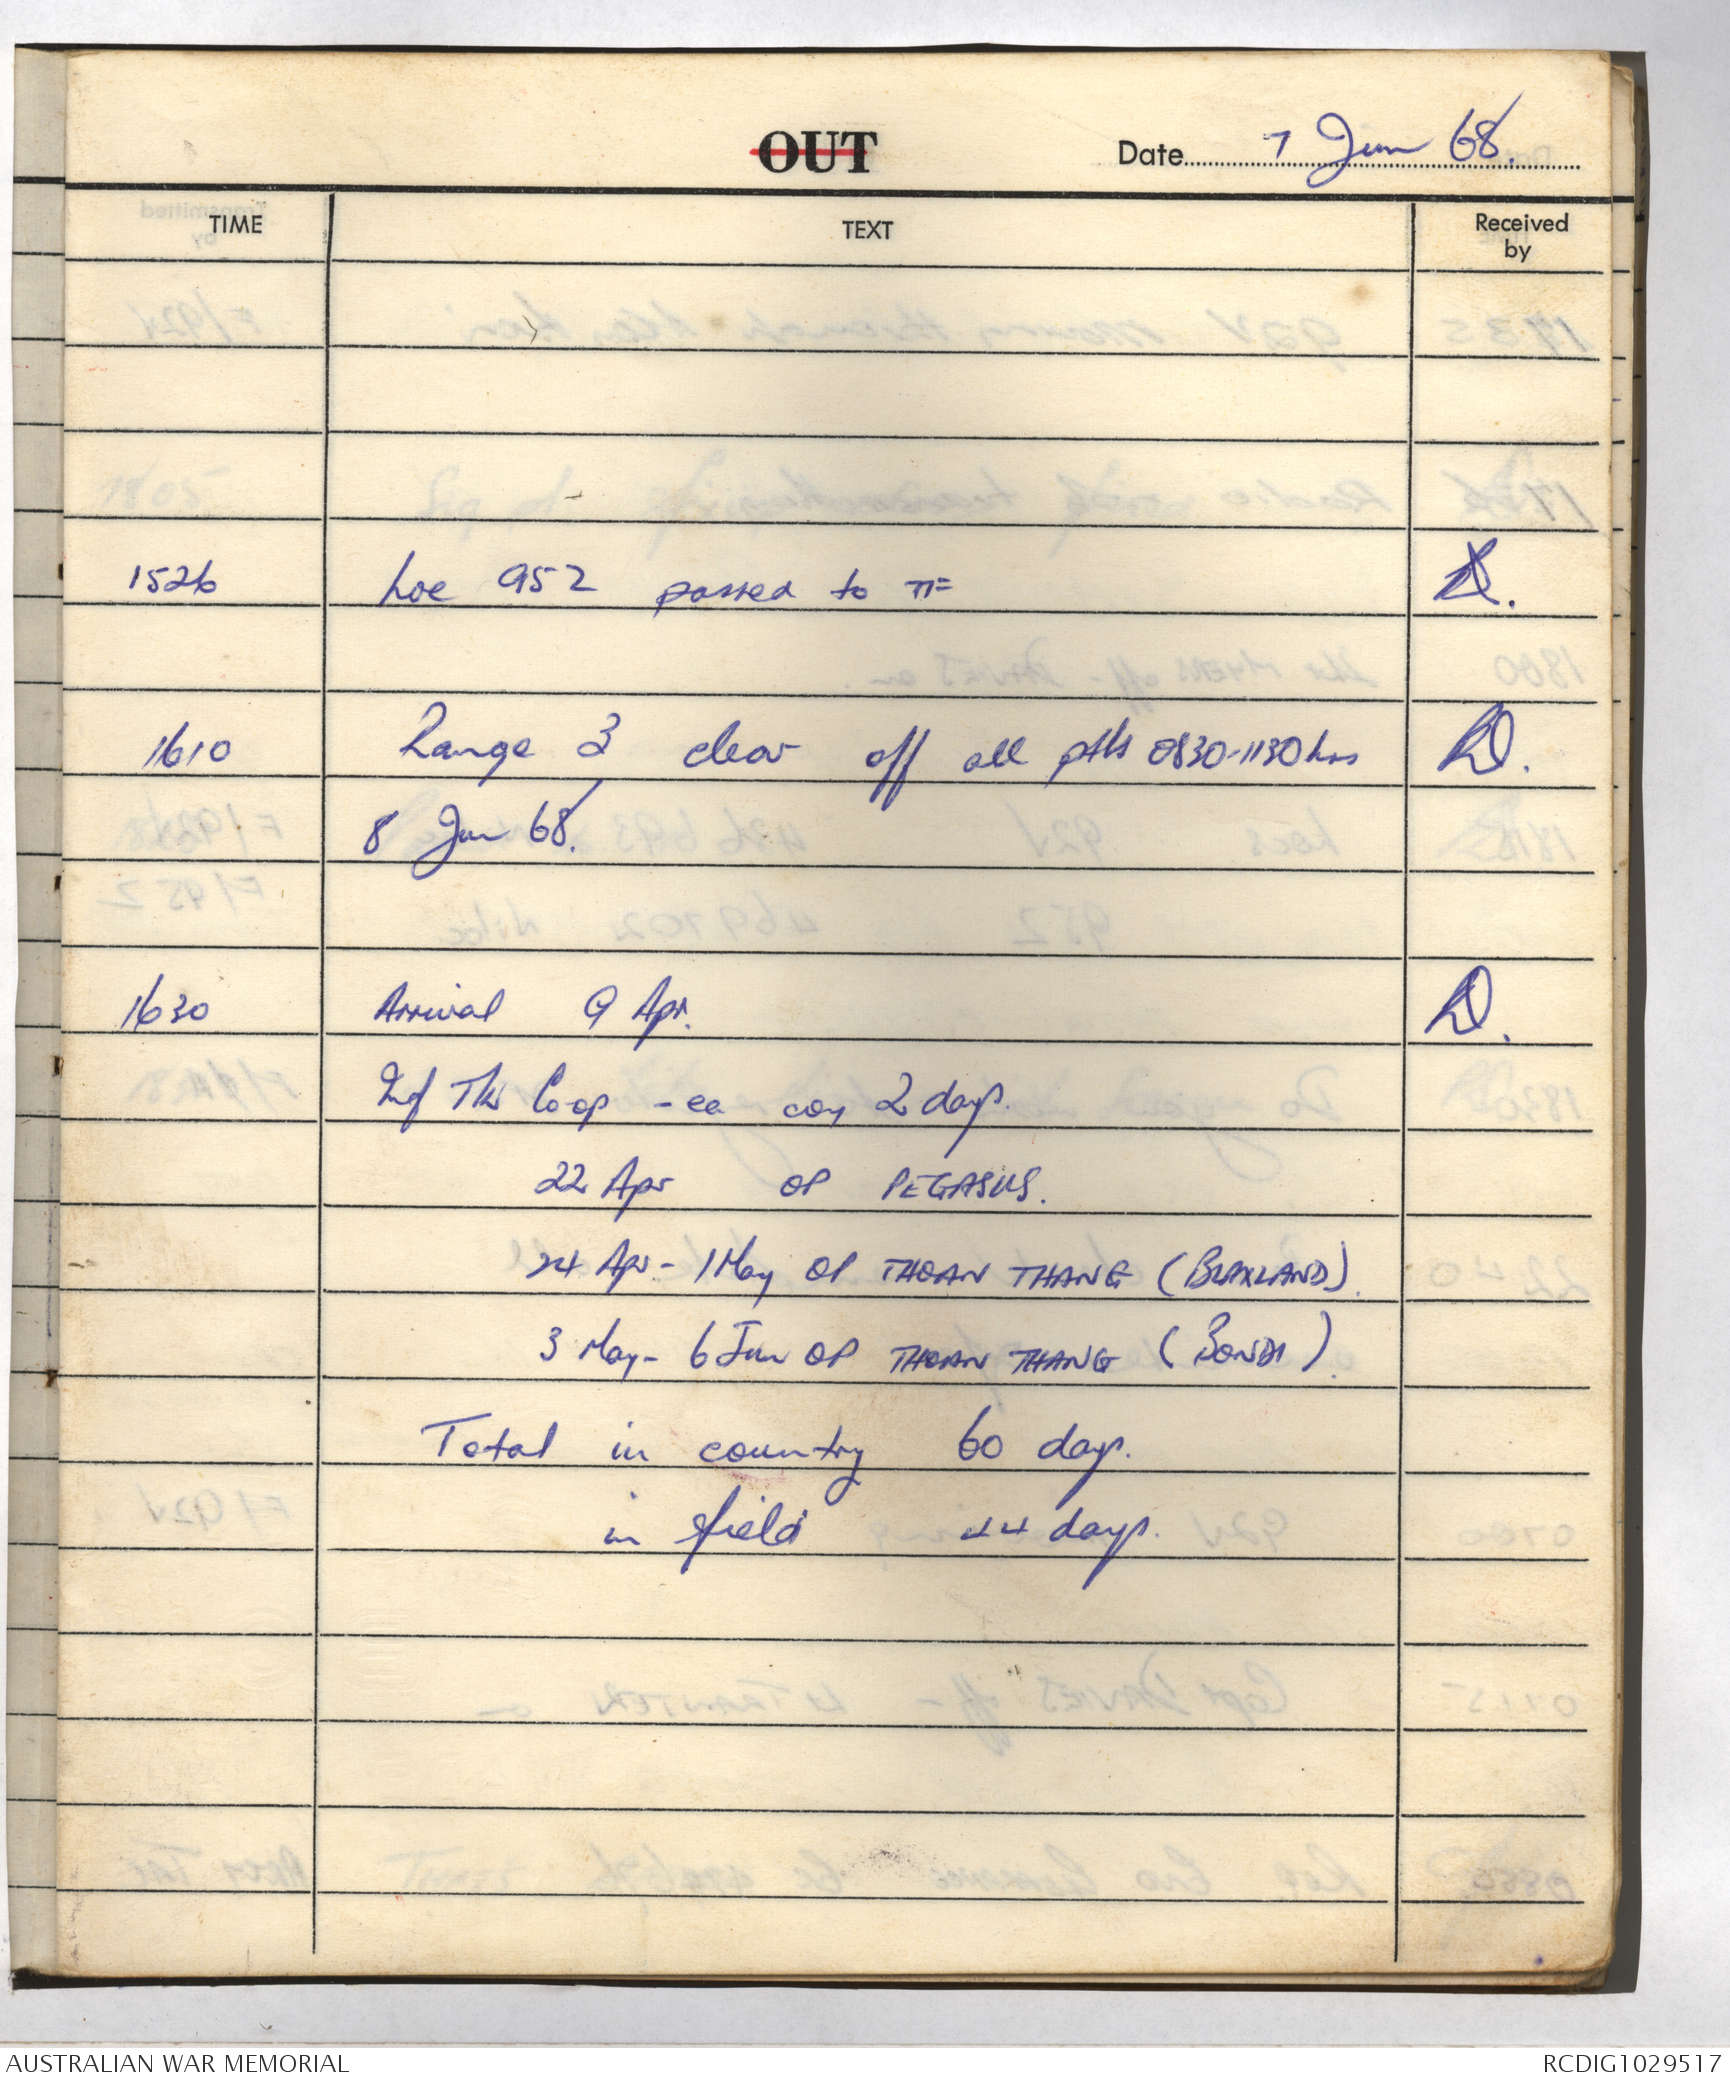 OUT
Date 7 Jun 68.
TIME TEXT Received by
1526 Loc 952 passed to TF
1610 Range 3 clear off all ptls 0830-1130 hrs
8 Jun 68.
1630 Arrival 9 Apr.
Inf Tk Co-op - ea coy 2 days.
22 Apr OP PEGASUS.
24 Apr - 1 May OP THOAN THANG (BLAXLAND).
3 May - 6 Jun OP THOAN THANG (BONDI).
Total in country 60 days.
in field 44 days.
AUSTRALIAN WAR MEMORIAL RCDIG1029517